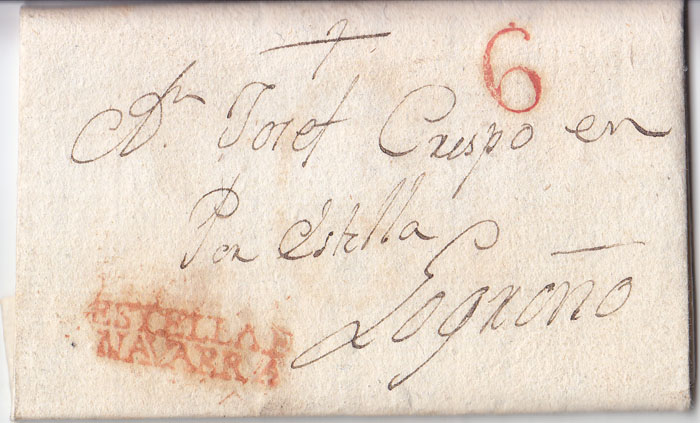 6
A Dn. Josef Crespo en
Por Estella
Logroño
ESTELLA E
NAVARRA